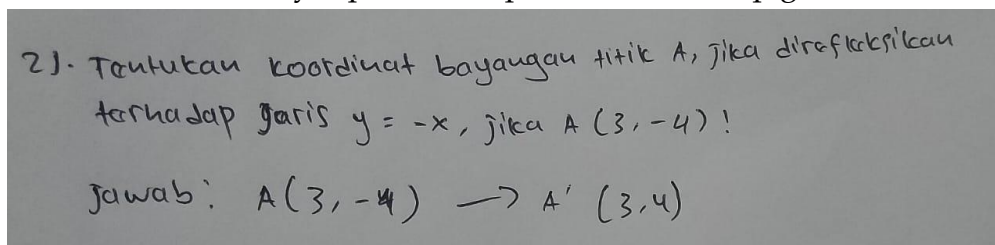 2). Tentukan koordinat bayangan titik A, jika direfleksikan
terhadap garis y = -x, jika A (3, -4)!
Jawab: A(3, -4) → A' (3,4)